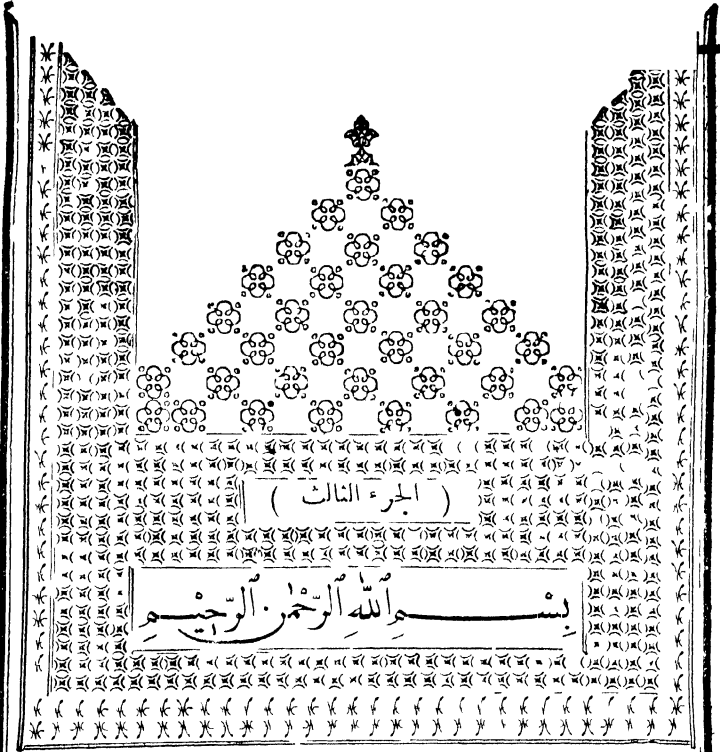 ( الجزء الثالث )
بِسْمِ ٱللَّهِ ٱلرَّحْمَٰنِ ٱلرَّحِيمِ